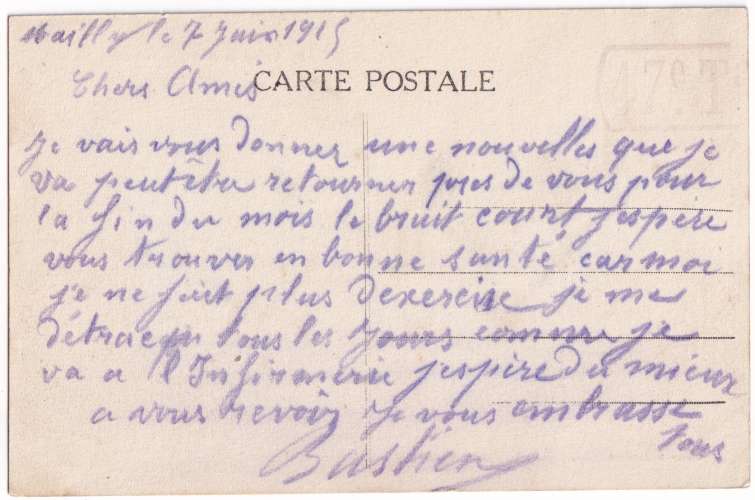 Mailly le 7 Juin 1915
Chers Amis
CARTE POSTALE
Je vais vous donner une nouvelles que je
va peutêtre retourner pres de vous pour
la fin du mois le bruit court jespère
vous trouver en bonne santé car moi
je ne fait plus dexercise je me
tous les jours comme je
va a l'Infirmerie jespère du mieux
a vous revoir Je vous embrasse
tous
Bastien